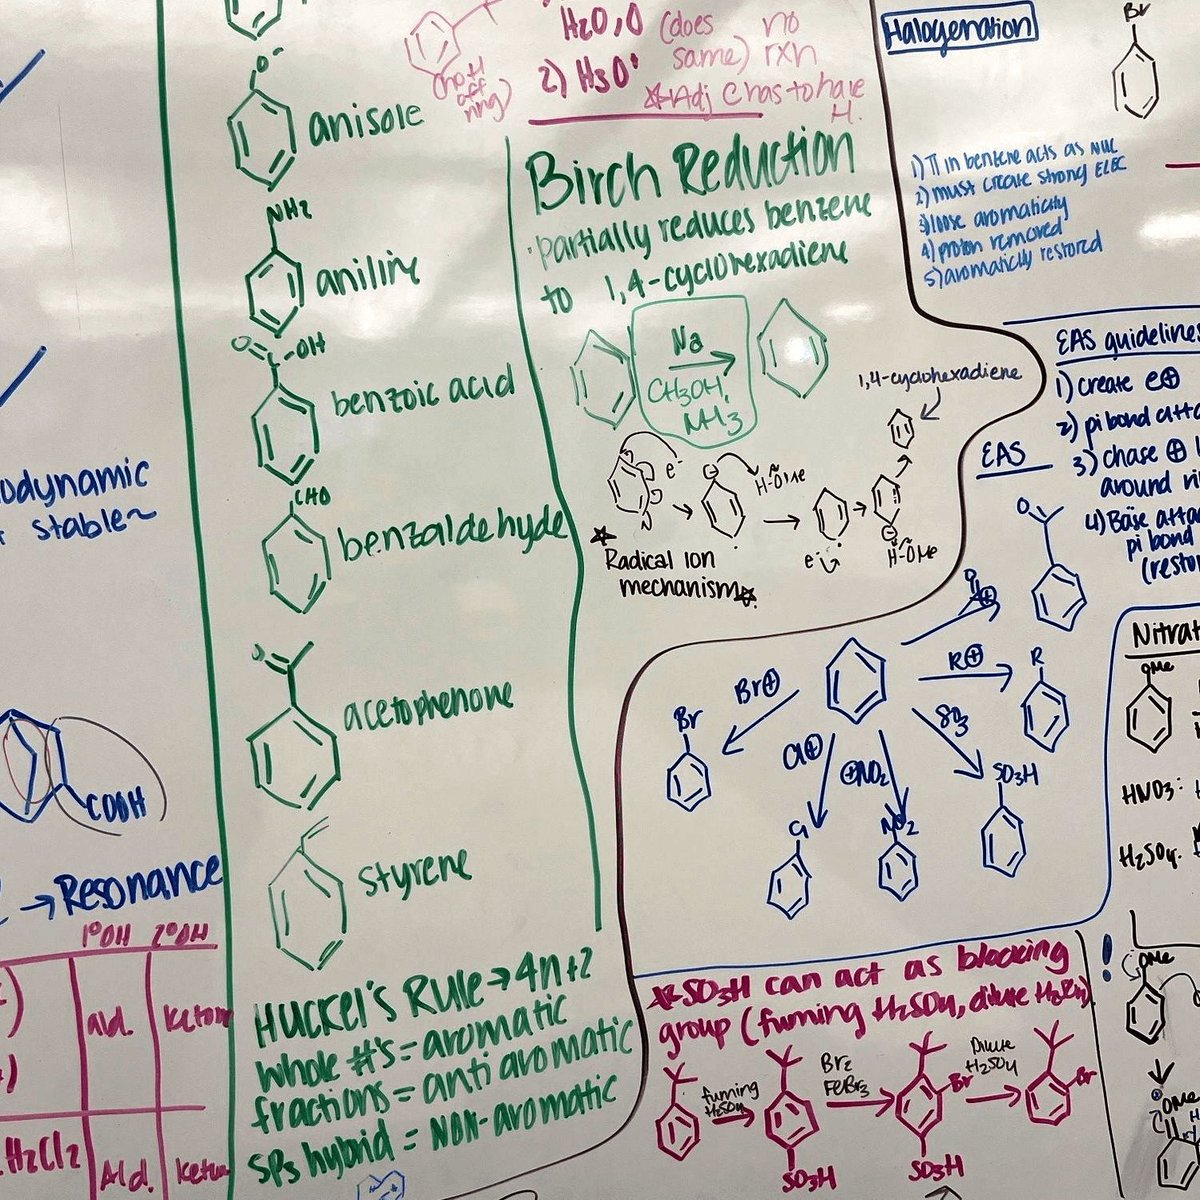 odynamic
stable~
COOH
→Resonance
1°OH 2°OH
ald.
H2Cl2
Ald.
O-
anisole
NH2
aniline
O
C-OH
benzoic acid
CHO
benzaldehyde
O
acetophenone
styrene
HUCKEL'S RULE → 4n+2
whole #'s = aromatic
fractions = anti aromatic
SP3 hybrid = NON-aromatic
(no H
off
ring)
H2O,O (does no
same) rxn
2) H3O+
☆Adj C has to have
H.
Birch Reduction
·partially reduces benzene
to 1,4-cyclohexadiene
Na
CH3OH,
NH3
1,4-cyclohexadiene
e-
H-OMe
e-
H-OMe
☆
Radical Ion
mechanism☆
Halogenation
Br
1) π in benzene acts as NUC
2) must create strong ELEC
3) loose aromaticity
4) proton removed
5) aromaticity restored
EAS guidelines
1) create e⊕
2) pi bond atta
3) chase ⊕
around ri
4) Base atta
pi bond
(restor
EAS
O
O
⊕
R⊕
R
Br⊕
Br
Cl⊕
Cl
⊕NO2
NO2
SO3
SO3H
Nitrat
OMe
HNO3:
H2SO4:
!
OMe
OMe
☆SO3H can act as blocking
group (fuming H2SO4, dilute H2SO4)
fuming
H2SO4
SO3H
Br2
FeBr3
Br
SO3H
Dilute
H2SO4
Br